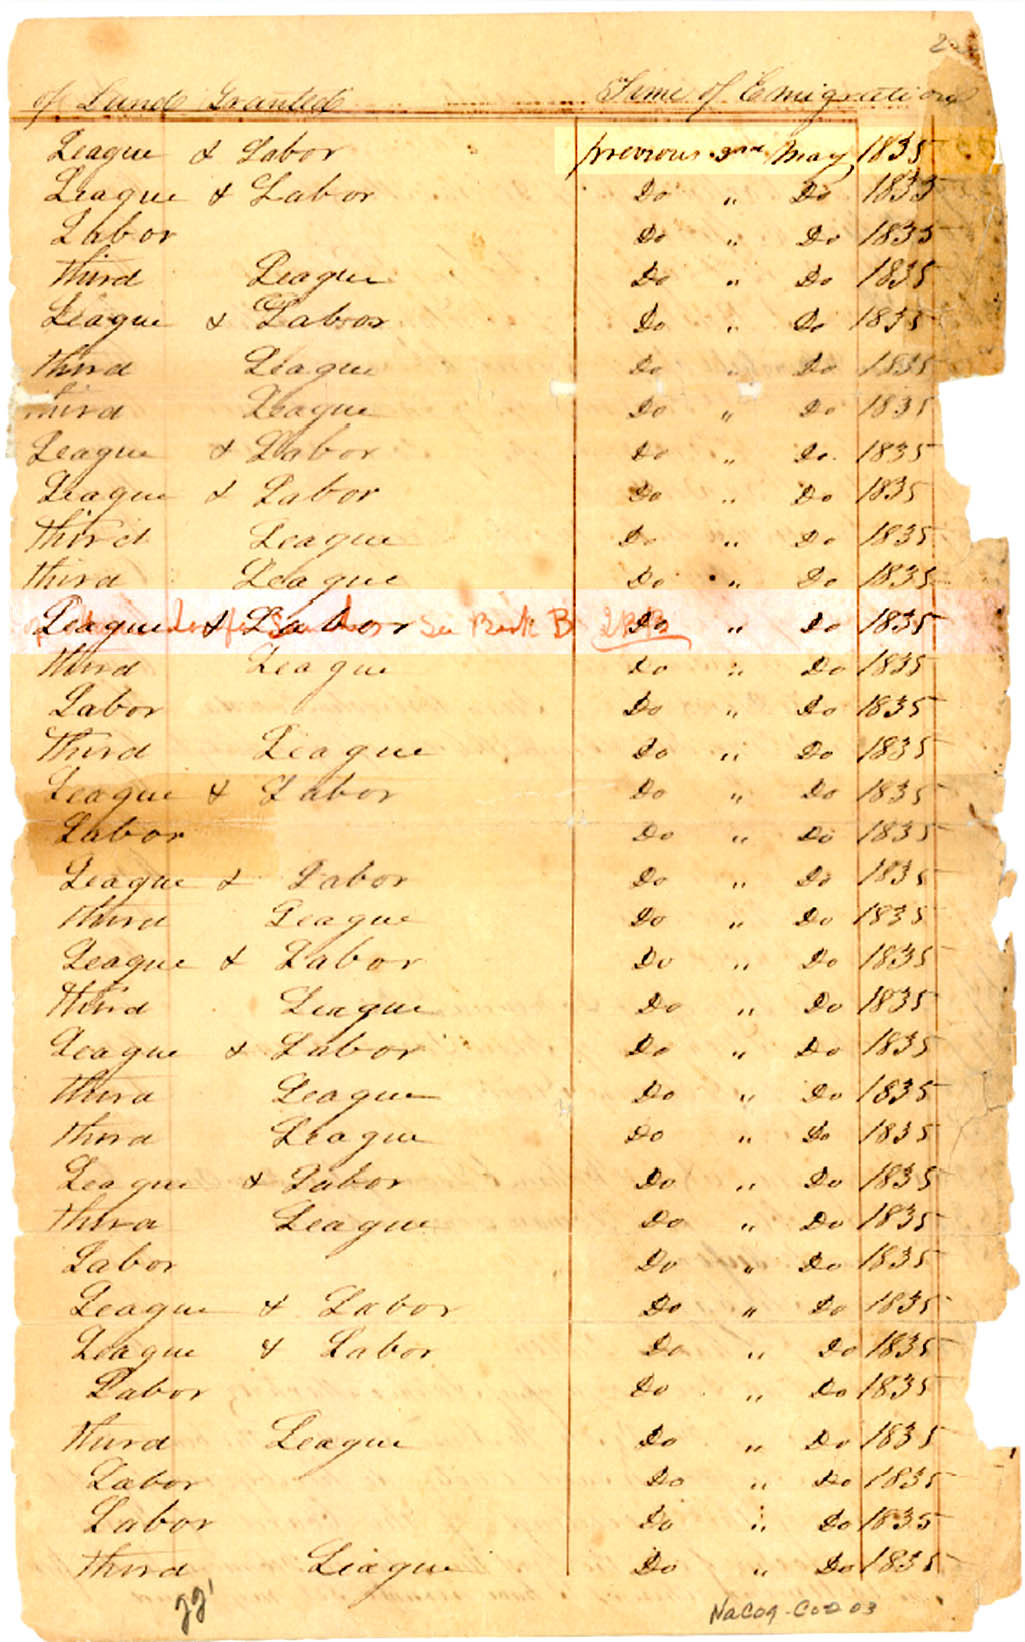 of Land Granted Time of Emigration
League & Labor previous 2nd May 1835
League & Labor Do " Do 1835
Labor Do " Do 1835
third League Do " Do 1835
League & Labor Do " Do 1835
third League Do " Do 1835
third League Do " Do 1835
League & Labor Do " Do 1835
League & Labor Do " Do 1835
third League Do " Do 1835
third League Do " Do 1835
League & Labor See Book B Do " Do 1835
third League Do " Do 1835
Labor Do " Do 1835
third League Do " Do 1835
League & Labor Do " Do 1835
Labor Do " Do 1835
League & Labor Do " Do 1835
third League Do " Do 1835
League & Labor Do " Do 1835
third League Do " Do 1835
League & Labor Do " Do 1835
third League Do " Do 1835
third League Do " Do 1835
League & Labor Do " Do 1835
third League Do " Do 1835
Labor Do " Do 1835
League & Labor Do " Do 1835
League & Labor Do " Do 1835
Labor Do " Do 1835
third League Do " Do 1835
Labor Do " Do 1835
Labor Do " Do 1835
third League Do " Do 1835
Nacog-Co 03